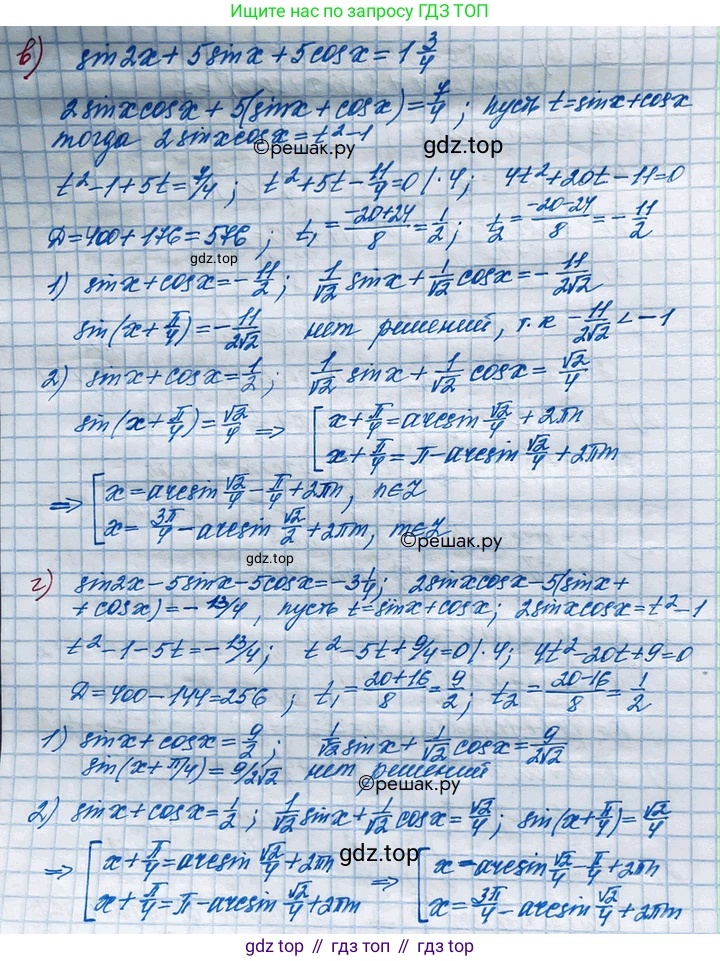 Ищите нас по запросу ГДЗ ТОП
в) sin2x + 5sinx + 5cosx = 1 3/4
2sinxcosx + 5(sinx + cosx) = 7/4 ; пусть t = sinx + cosx
тогда 2sinxcosx = t² - 1
©решак.ру
gdz.top
t² - 1 + 5t = 7/4 ; t² + 5t - 11/4 = 0 | · 4 ; 4t² + 20t - 11 = 0
D = 400 + 176 = 576 ; t₁ = (-20+24)/8 = 1/2 ; t₂ = (-20-24)/8 = -11/2
gdz.top
1) sinx + cosx = -11/2 ; 1/√2 sinx + 1/√2 cosx = -11/2√2
sin(x + π/4) = -11/2√2 нет решений, т.к -11/2√2 < -1
2) sinx + cosx = 1/2 ; 1/√2 sinx + 1/√2 cosx = √2/4
sin(x + π/4) = √2/4 => [ x + π/4 = arcsin √2/4 + 2πn
x + π/4 = π - arcsin √2/4 + 2πm
=> [ x = arcsin √2/4 - π/4 + 2πn, n∈Z
x = 3π/4 - arcsin √2/2 + 2πm, m∈Z
©решак.ру
gdz.top
г) sin2x - 5sinx - 5cosx = -3 1/4 ; 2sinxcosx - 5(sinx +
+ cosx) = -13/4 , пусть t = sinx + cosx ; 2sinxcosx = t² - 1
t² - 1 - 5t = -13/4 ; t² - 5t + 9/4 = 0 | · 4 ; 4t² - 20t + 9 = 0
D = 400 - 144 = 256 ; t₁ = (20+16)/8 = 9/2 ; t₂ = (20-16)/8 = 1/2
1) sinx + cosx = 9/2 ; 1/√2 sinx + 1/√2 cosx = 9/2√2
sin(x + π/4) = 9/2√2 нет решений
©решак.ру
2) sinx + cosx = 1/2 ; 1/√2 sinx + 1/√2 cosx = √2/4 ; sin(x + π/4) = √2/4
gdz.top
=> [ x + π/4 = arcsin √2/4 + 2πn => [ x = arcsin √2/4 - π/4 + 2πn
x + π/4 = π - arcsin √2/4 + 2πm x = 3π/4 - arcsin √2/4 + 2πm
gdz.top // гдз.top // гдз.топ